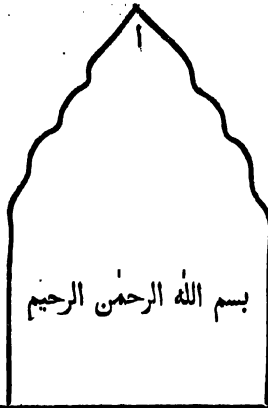 ا
بسم الله الرحمٰن الرحيم